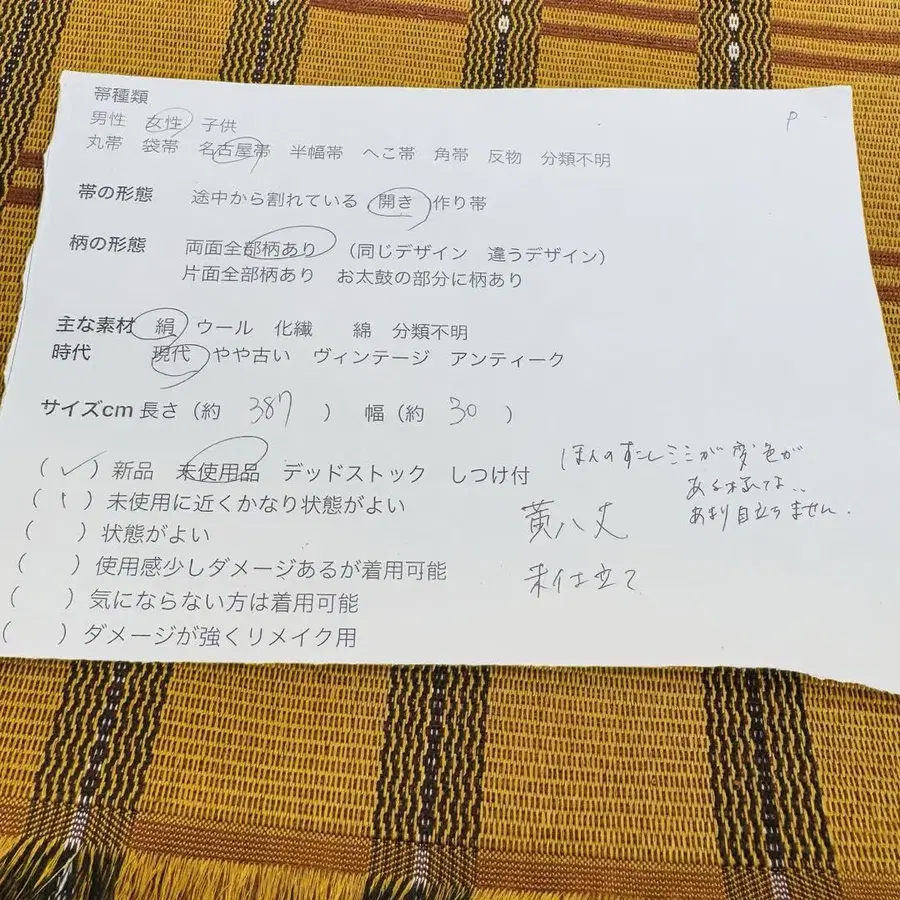 帯種類
P
男性 女性 子供
丸帯 袋帯 名古屋帯 半幅帯 へこ帯 角帯 反物 分類不明
帯の形態 途中から割れている 開き 作り帯
柄の形態 両面全部柄あり (同じデザイン 違うデザイン)
片面全部柄あり お太鼓の部分に柄あり
主な素材 絹 ウール 化繊 綿 分類不明
時代 現代 やや古い ヴィンテージ アンティーク
サイズcm 長さ(約 387 ) 幅(約 30 )
(✓)新品 未使用品 デッドストック しつけ付
( )未使用に近くかなり状態がよい
( )状態がよい
( )使用感少しダメージあるが着用可能
( )気にならない方は着用可能
( )ダメージが強くリメイク用
ほんのすこし シミが変色が
ある
あまり目立ちません.
黄八丈
未仕立て